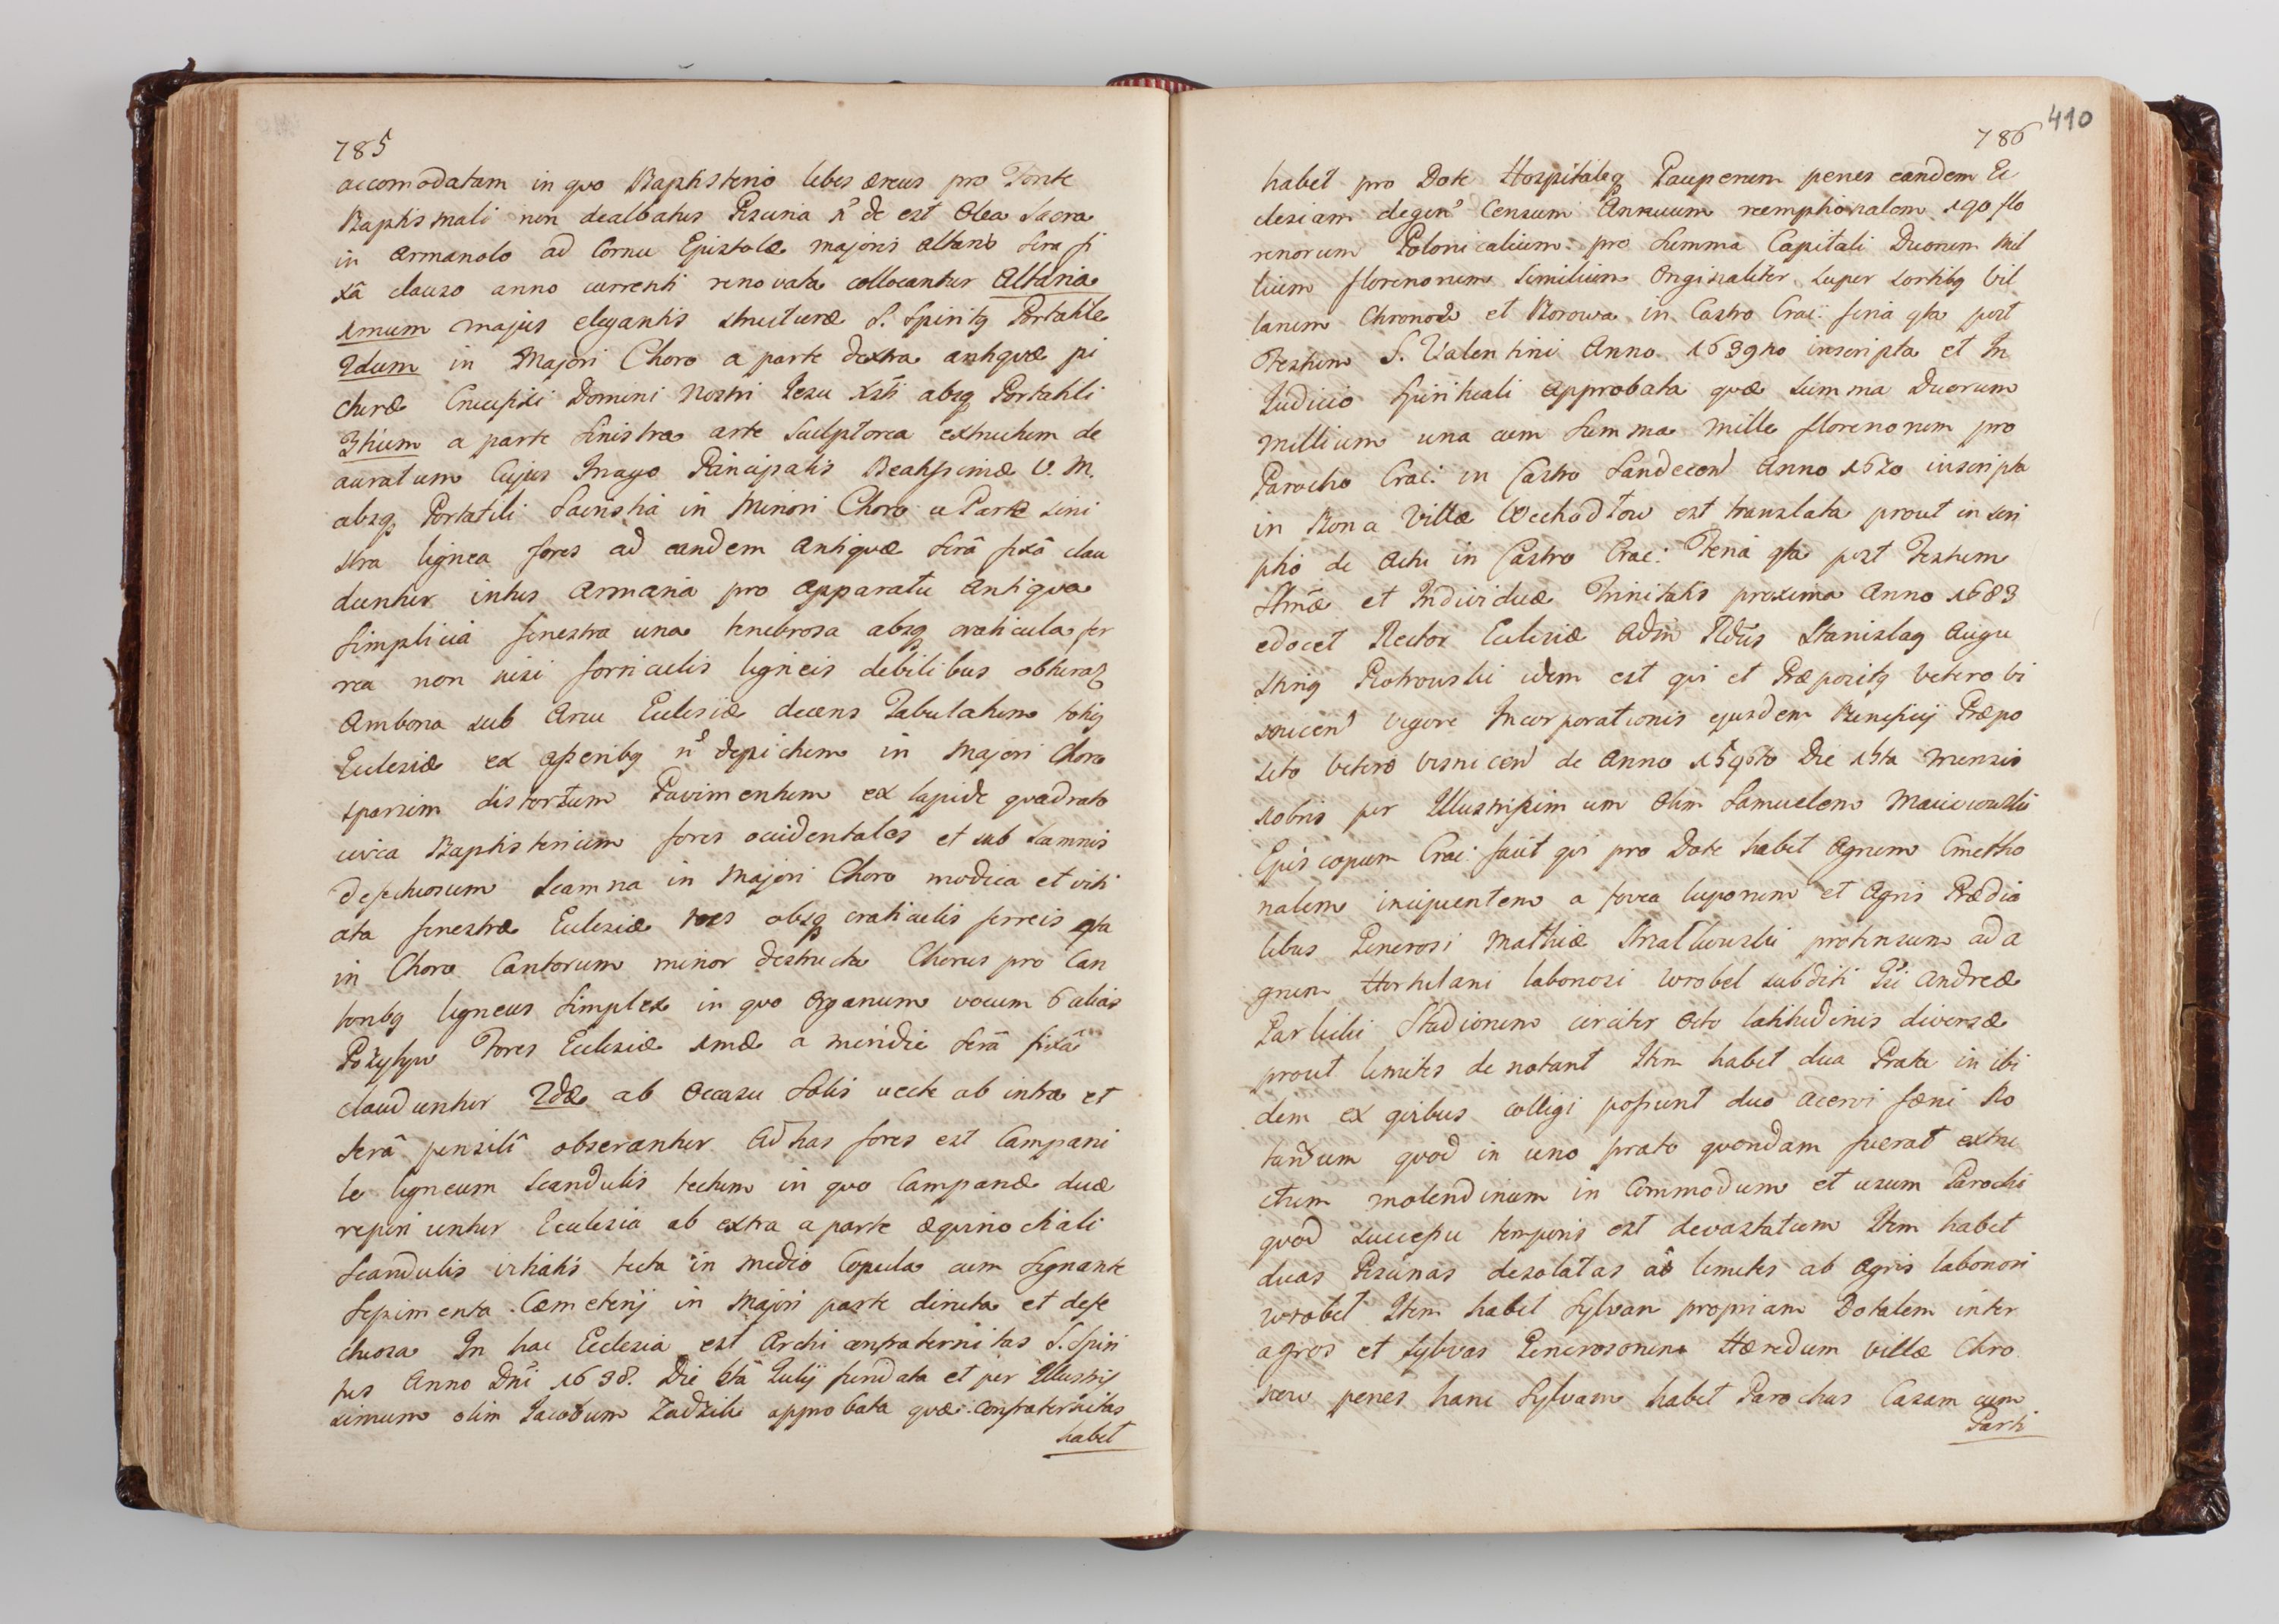 785
accomodatam in quo Baptisterio lebes æreus pro Fonte
Baptismali non dealbatus Piscina n̄ de est Olea Sacra
in Armariolo ad Cornu Epistolæ majoris Altaris sera fi
xâ clauso anno currenti renovata collocantur Altaria
1mum majus elegantis structuræ S. Spiritq Portatile
2dum in Majori Choro a parte dextra antiquæ pi
cturæ Crucifixi Domini Nostri Jesu Xsti absq Portatili
3tium a parte Sinistra arte Sculptorea extructum de
auratum Cujus Imago Principalis Beatissimæ V. M.
absq Portatili Sacristia in Minori Choro a Parte sini
stra lignea fores ad eandem Antiquæ serâ fixâ clau
duntur intus Armaria pro Apparatu Antiqua
Simplicia fenestra una tenebrosa absq craticula fer
rea non nisi forniculis ligneis debilibus obturat
Ambona sub Arcu Ecclesiæ decens Tabulatum totiq
Ecclesiæ ex asseribq n̄ depictum in Majori Choro
sparsim distortum Pavimentum ex lapide quadrato
circa Baptisterium fores occidentales et sub scamnis
defectuosum Scamna in Majori Choro modica et viti
ata fenestræ Ecclesiæ tres absq craticulis ferreis qta
in Choro Cantorum minor destructa Chorus pro Can
toribq ligneus Simplex in quo Organum vocum 6 alias
Pozytyw Fores Ecclesiæ 1mæ a meridie serâ fixâ
clauduntur 2dæ ab Occasu Solis vecte ab intra et
serâ pensili obserantur Ad has fores est Campani
le ligneum Scandulis tectum in quo Campanæ duæ
reperiuntur Ecclesia ab extra a parte æquinoctiali
Scandulis vitiatis tecta in medio Copula cum Signante
Sepimenta Cæmeterij in Majori parte diruta et defe
ctuosa In hac Ecclesia est Archiconfraternitas S. Spiri
tus Anno Dni 1638. Die 6tâ Julij fundata et per Illustris
simum olim Jacobum Zadzik approbata quæ confraternitas
habet
786
410
habet pro Dote Hospitaliq Pauperum penes eandem Ec
clesiam degen̄ Censum Annuum reemptionalem 140 flo
renorum Polonicalium pro Summa Capitali Duorum Mil
lium florenorum Similium Originaliter super sortibq Vil
larum Chronow et Borowa in Castro Crac: feria qta post
Festum S. Valentini Anno 1639no inscripta et In
Judicio Spirituali Approbata quæ Summa Duorum
Millium una cum Summa Mille florenorum pro
Parocho Crac: in Castro Sandecen̄ Anno 1620 inscripta
in Bona Villæ Wechadłow est translata prout inscri
ptio de Actu in Castro Crac: Feria qta post Festum
Stmæ et Individuæ Trinitatis proxima Anno 1683
edocet Rector Ecclesiæ Adm Rdus Stanislaq Augu
stinq Piotrowski idem est qui et Præpositq Vetero Vi
snicen̄ vigore Incorporationis ejusdem Beneficij Præpo
sito Vetero Visnicen̄ de Anno 1596to Die 15ta Mensis
xobris per Illustrissimum Olim Samuelem Maciejowski
Episcopum Crac: facit qui pro Dote habet Agrum Cmetho
nalem incipientem a fovea luporum et Agris Prædia
libus Generosi Mathiæ Strzałkowski protensum ad a
grum Hortulani laboriosi Wrobel subditi Gsi Andreæ
Parlicki Stadiorum circiter Octo latitudinis diversæ
prout limites denotant Item habet dua Prata in ibi
dem ex quibus colligi possunt duo Acervi fæni No
tandum quod in uno prato quondam fuerat extru
ctum molendinum in Commodum et usum Parochi
quod successu temporis est devastatum Item habet
duas Piscinas desolatas ad limites ab Agris laboriosi
Wrobel Item habet Sylvam propriam Dotalem inter
agros et Sylvas Generosorum Hæredum villæ Chro
now penes hanc Sylvam habet Parochus Casam cum
Parti